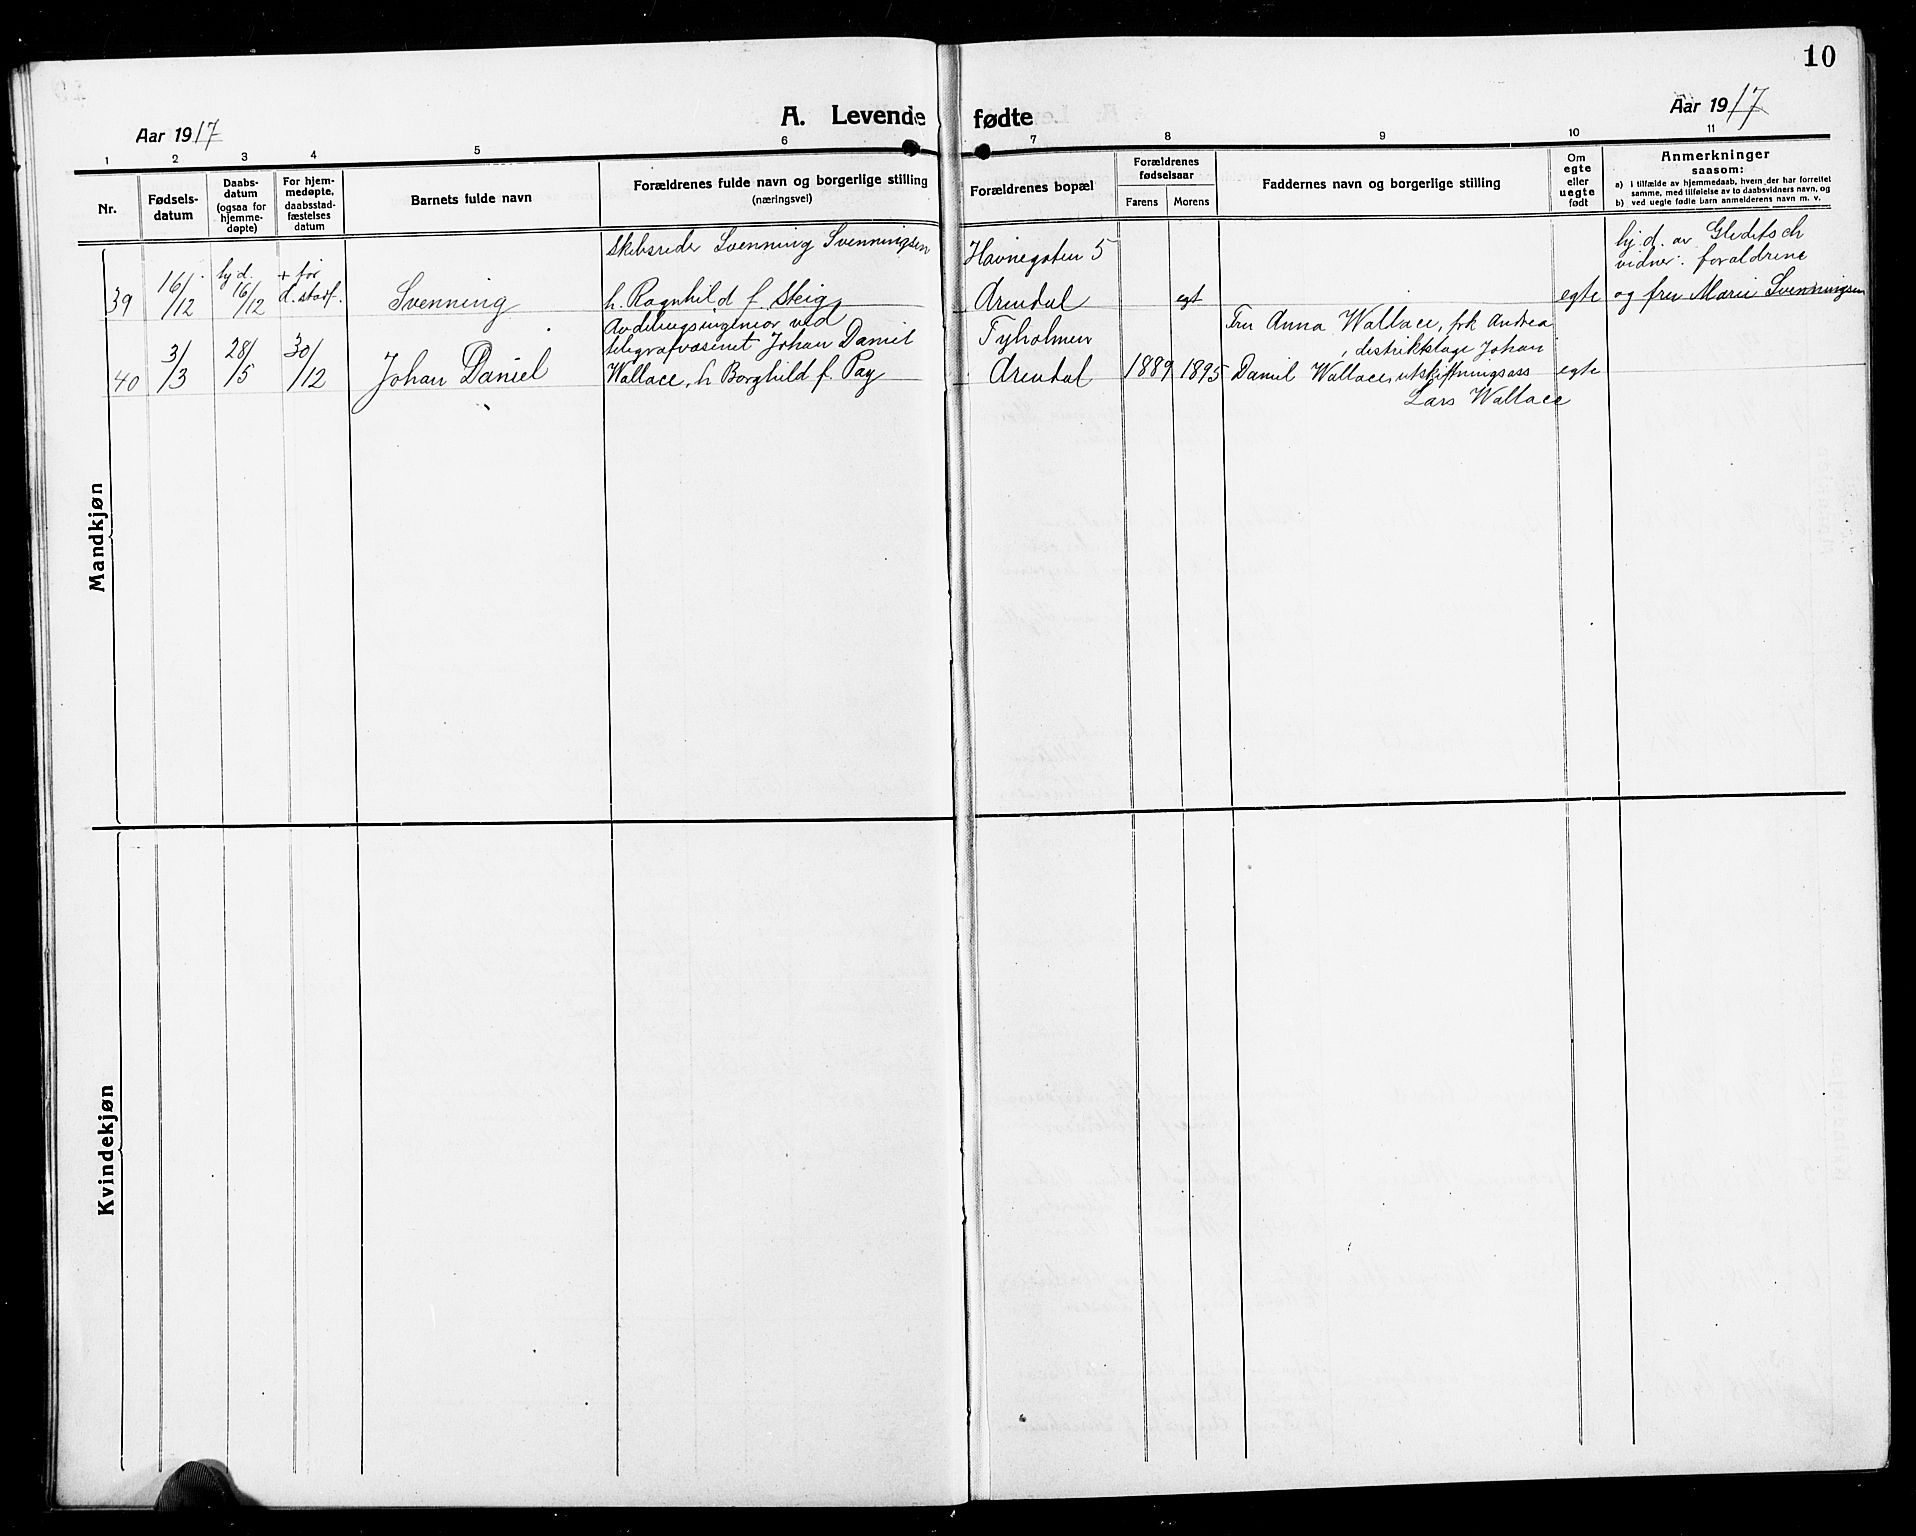 10
A. Levende fødte
Aar 1917
Aar 1917
1 2 3 4 5 6 7 8 9 10 11
Nr.
Fødsels-
datum
Daabs-
datum
(ogsaa for
hjemme-
døpte)
For hjem-
medøpte,
daabsstad-
fæstelses
datum
Barnets fulde navn
Forældrenes fulde navn og borgerlige stilling
(næringsvei)
Forældrenes bopæl
Forældrenes
fødselsaar
Farens Morens
Faddernes navn og borgerlige stilling
Om
egte
eller
uegte
født
Anmerkninger
saasom:
a) i tilfælde av hjemmedaab, hvem der har forrettet
samme, med tilføielse av to daabsvidners navn, og
b) ved uegte fødte barn anmelderens navn m. v.
Mandkjøn
39
16/12
hj.d.
16/12
+ før
d. stadf.
Svenning
Skibsreder Svenning Svenningsen
h. Ragnhild f. Steig
Havnegaten 5
Arendal
egt
egte
hj. d. av Gleditsch
vidner: forældrene
og fru Marie Svenningsen
40
3/3
28/5
30/12
Johan Daniel
Avdelingsingeniør ved
telegrafvæsenet Johan Daniel
Wallace, h Borghild f. Pay
Tyholmen
Arendal
1889 1895
Fru Anna Wallace, frk Andrea
, distriktslæge Johan
Daniel Wallace, utskiftningsass
Lars Wallace
egte
Kvindekjøn